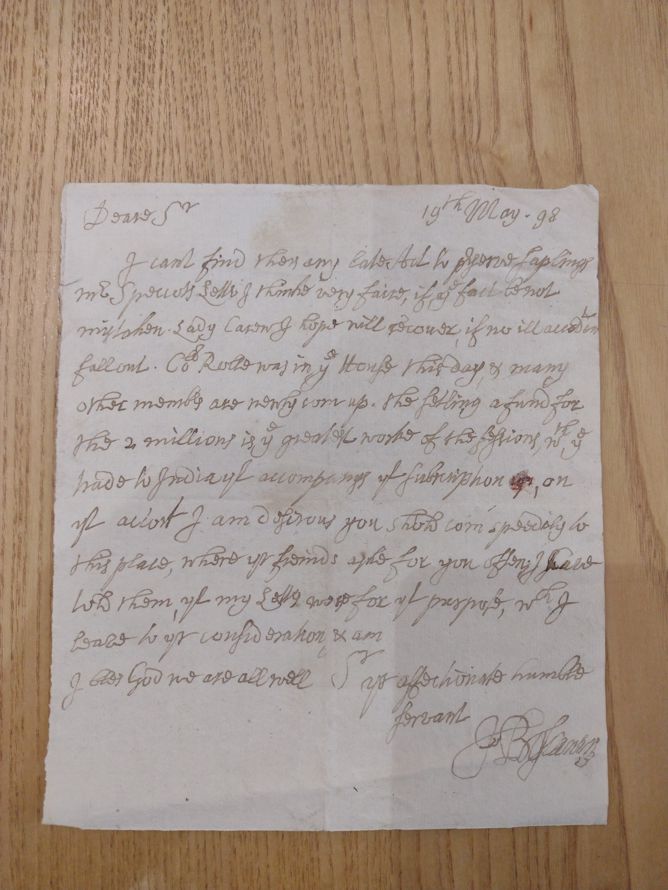 Deare Sr 19th May. 98
I cant find ther any late Act to pserve saplings
mr Speccots Lettr I thinke very faire, if ye fact be not
mistaken. Lady Carew I hope will recover, if no ill accidt
fall out. Coll Rolle was in ye House this day, & many
other membrs are newly com up. the setling a fund for
the 2 millions is ye greatest worke of the sessions, wth ye
trade to India yt accompanys yt subscription, on
yt accot I am desirous you shold com speedily to
this place, where yr freinds aske for you often, I have
told them, yt my Lettrs were for yt purpose, wch I
leave to yr consideration, & am
I bles God we are all well Sr yr affectionate humble
servant